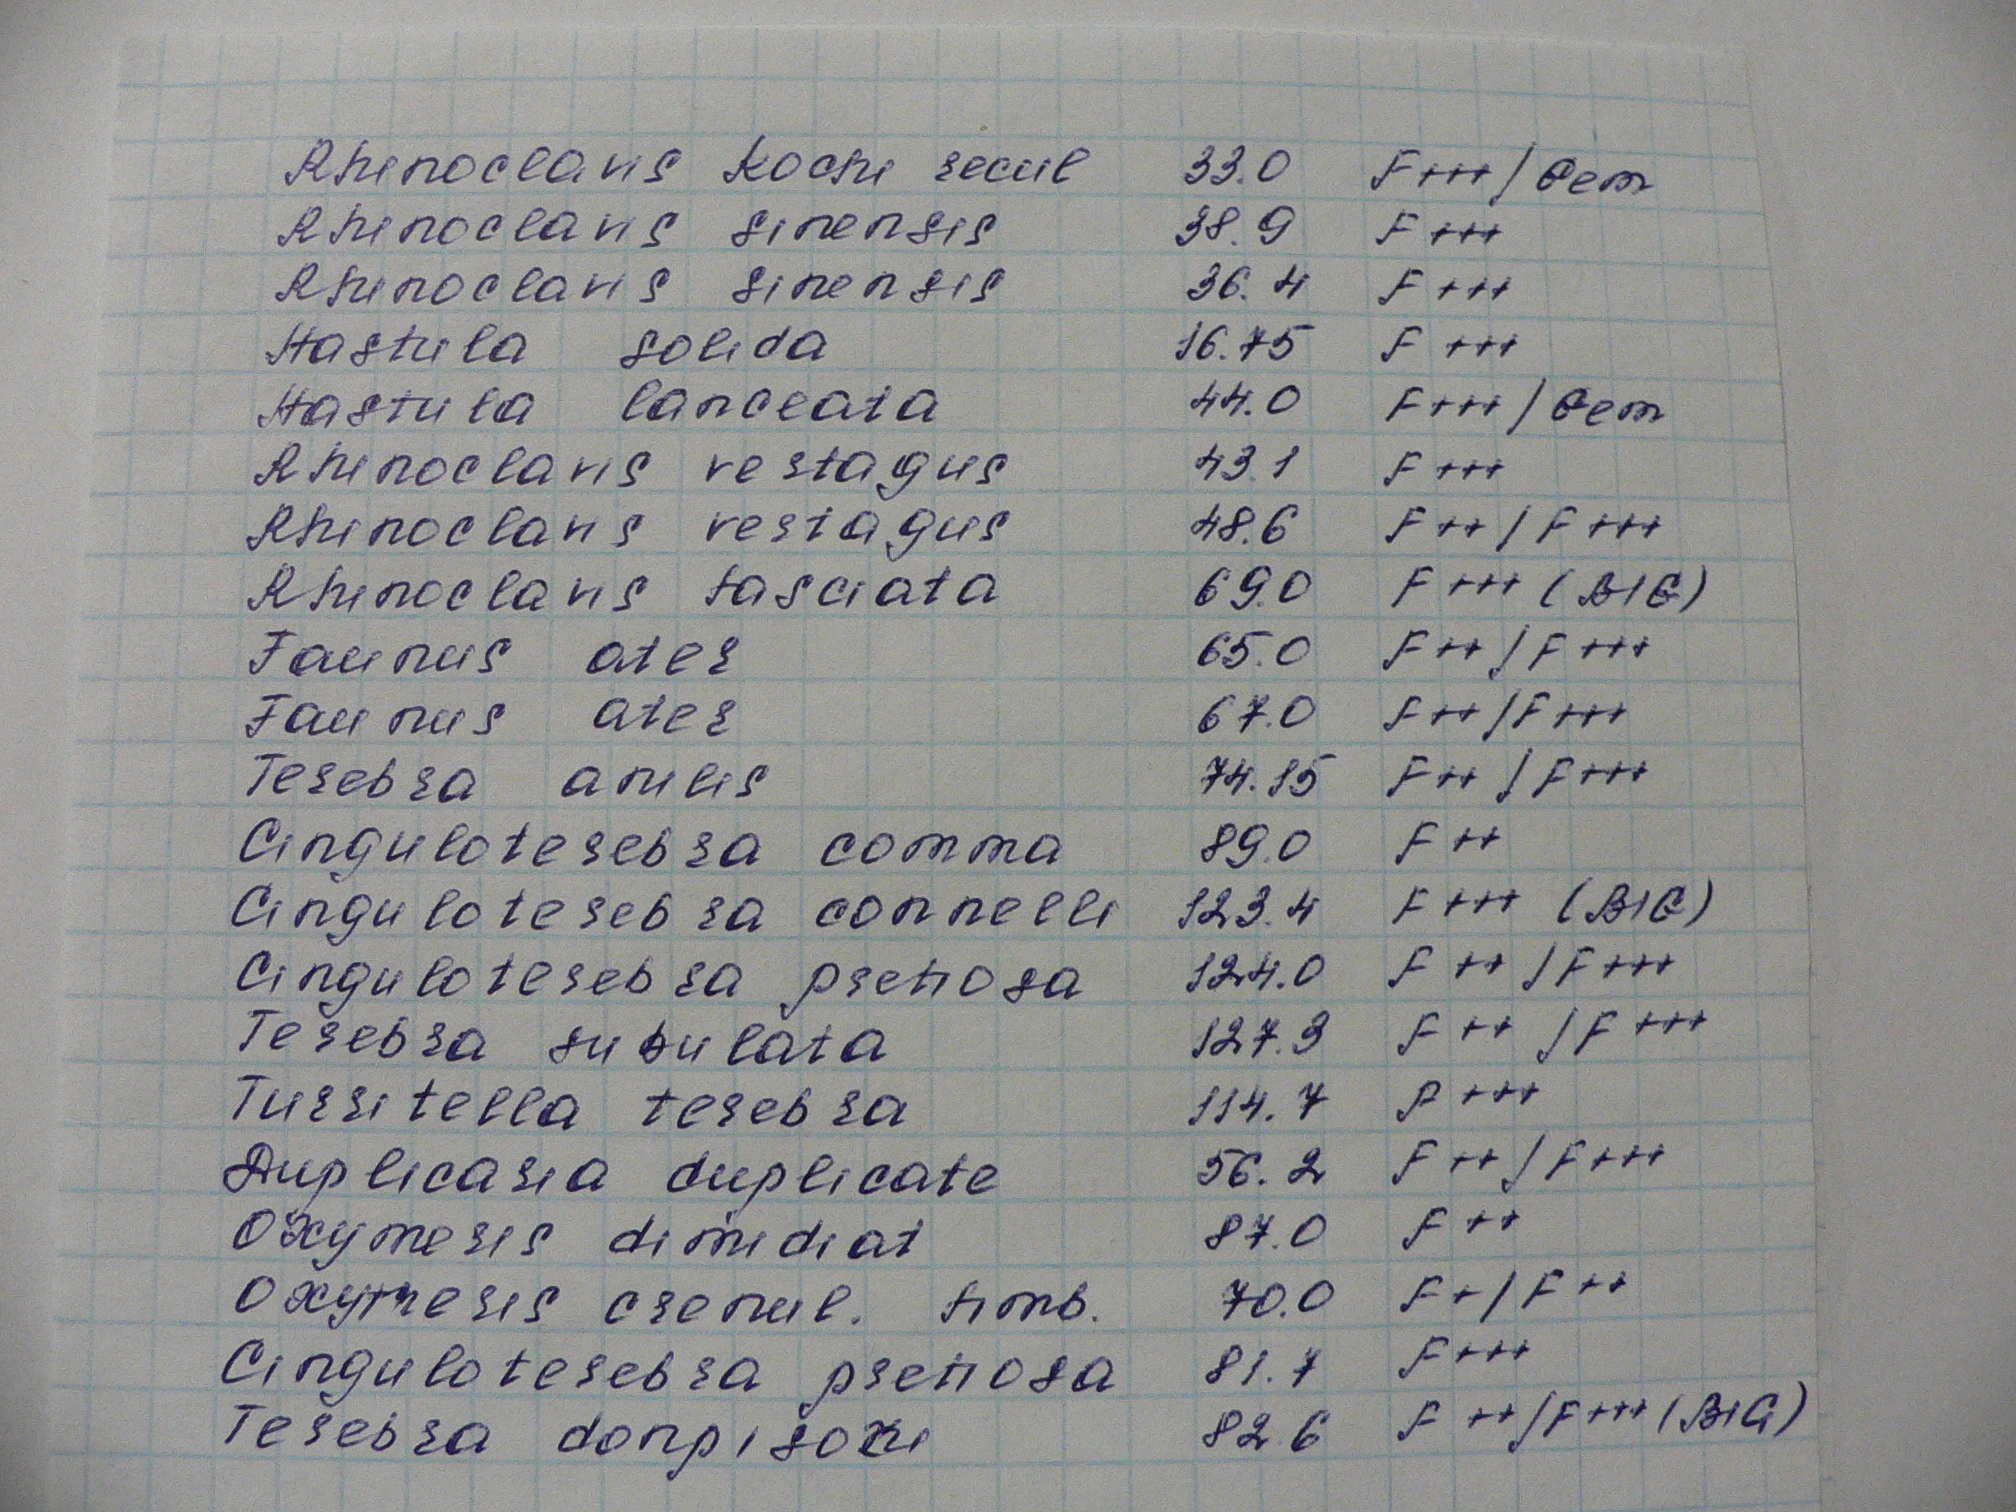 Rhinoclavis kochi recul 33.0 F+++/Gem
Rhinoclavis sinensis 38.9 F+++
Rhinoclavis sinensis 36.4 F+++
Hastula solida 16.75 F+++
Hastula lanceata 44.0 F+++/Gem
Rhinoclavis vertagus 43.1 F+++
Rhinoclavis vertagus 48.6 F++/F+++
Rhinoclavis fasciata 69.0 F+++ (BIG)
Faunus ater 65.0 F++/F+++
Faunus ater 67.0 F++/F+++
Terebra anilis 74.15 F++/F+++
Cinguloterebra comma 89.0 F++
Cinguloterebra connelli 123.4 F+++ (BIG)
Cinguloterebra pretiosa 124.0 F++/F+++
Terebra subulata 127.3 F++/F+++
Turritella terebra 114.7 F+++
Duplicaria duplicate 56.2 F++/F+++
Oxymeris dimidiat 87.0 F++
Oxymeris crenul. fimb. 70.0 F+/F++
Cinguloterebra pretiosa 81.7 F+++
Terebra 82.6 F++/F+++ (BIG)